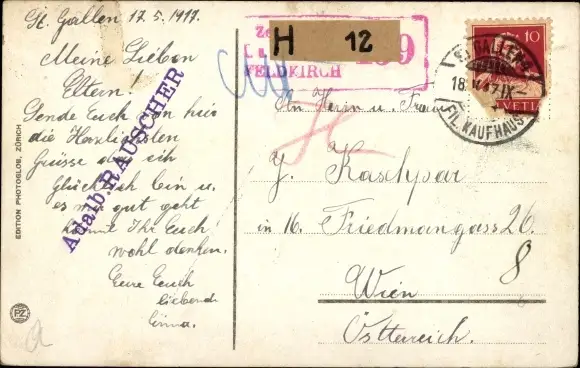 St. Gallen 17.5.1917.
Meine Lieben
Eltern!
Sende Euch von hier
die Herzlichsten
Grüsse das ich
Glücklich bin u.
es mir gut geht
könnt Ihr Euch
wohl denken.
Eure Euch
liebende
Emma.
Adalb. RAUSCHER
EDITION PHOTOGLOB, ZÜRICH
PZ
H 12
FELDKIRCH
10
HELVETIA
ST. GALLEN
18.V.17.IX
FIL. KAUFHAUS
An Herrn u. Frau
J. Kaschpar
in 16. Friedmangass 26.
8
Wien
Österreich.